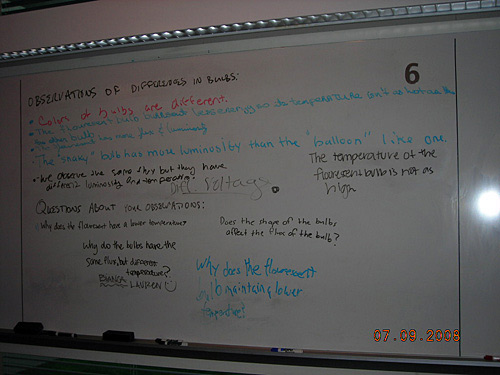 6
OBSERVATIONS OF DIFFERENCES IN BULBS:
• Color of bulbs are different.
• The flourescent bulb less energy so its temperature isn't as hot as the
other bulb
more flux & luminosity
The "snaky" bulb has more luminosity than the "balloon" like one.
• We observe the same flux but they have
different luminosity and temperature.
Diff. Voltage.
The temperature of the
flourescent bulb is not as
high.
QUESTIONS ABOUT YOUR OBSERVATIONS:
Why does the flourescent have a lower temperature?
Does the shape of the bulbs
affect the flux of the bulb?
Why do the bulbs have the
same flux, but different
temperatures?
BIANCA
LAUREN
Why does the flourescent
bulb maintain a lower
temperature?
07.09.2008